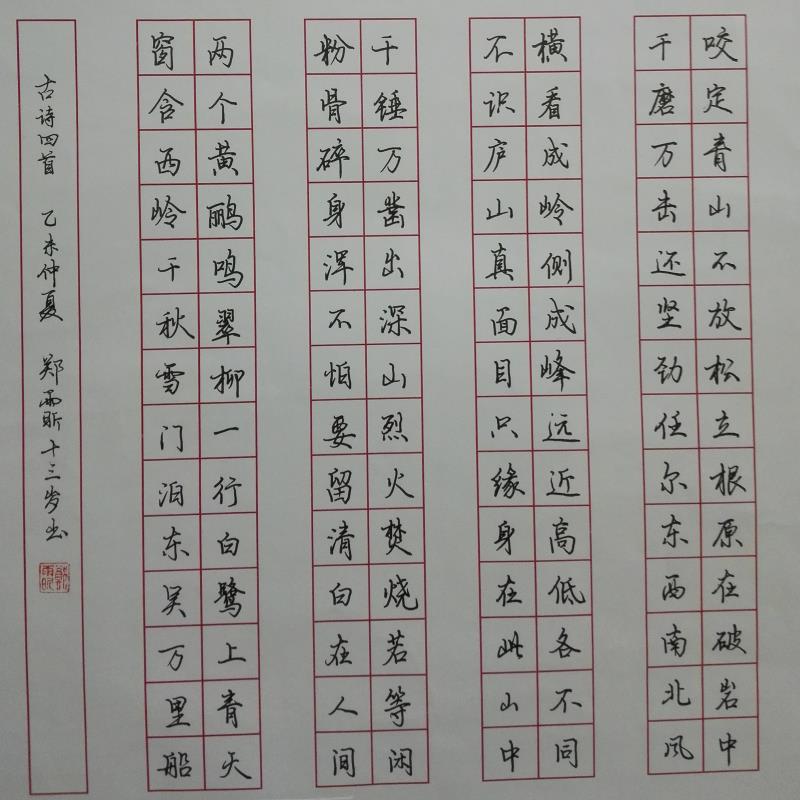 咬定青山不放松立根原在破岩中
千磨万击还坚劲任尔东西南北风
横看成岭侧成峰远近高低各不同
不识庐山真面目只缘身在此山中
千锤万凿出深山烈火焚烧若等闲
粉骨碎身浑不怕要留清白在人间
两个黄鹂鸣翠柳一行白鹭上青天
窗含西岭千秋雪门泊东吴万里船
古诗四首 乙未仲夏 郑雨昕十三岁书